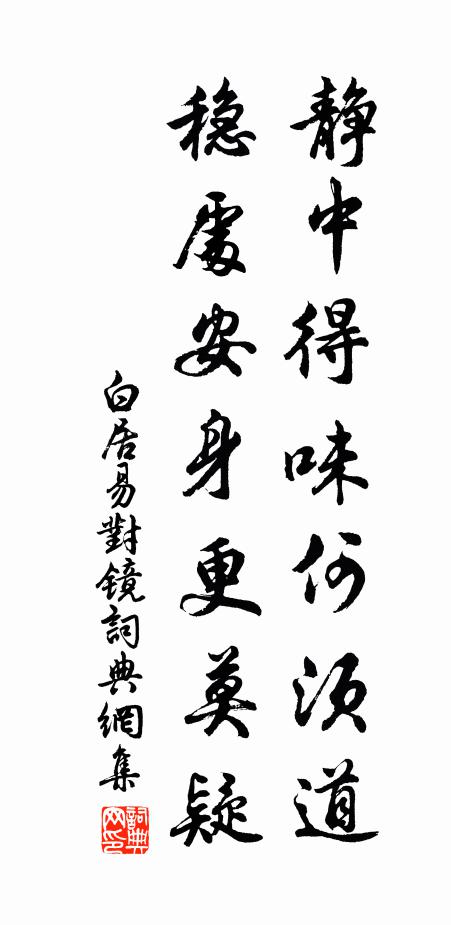 静中得味何须道
穩處安身更莫疑
白居易對镜詞典網集
詞典网印